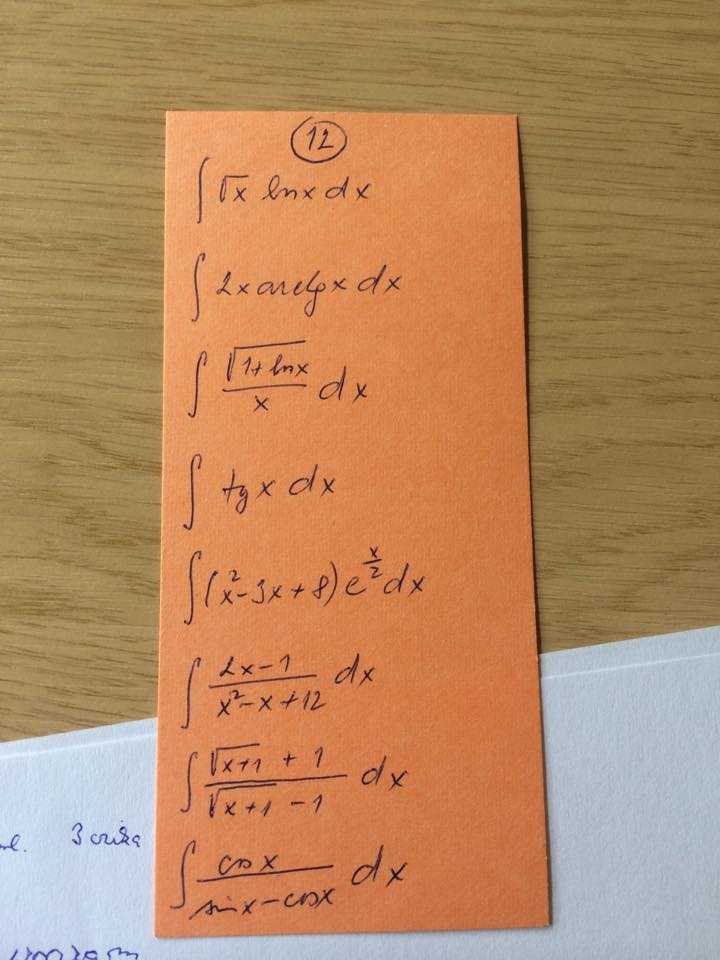 12
∫ √x lnx dx
∫ 2x arctgx dx
∫ √(1+lnx)/x dx
∫ tgx dx
∫ (x²-3x+8)e^(x/2) dx
∫ (2x-1)/(x²-x+12) dx
∫ (√(x+1) + 1)/(√(x+1) - 1) dx
∫ cosx/(sinx-cosx) dx